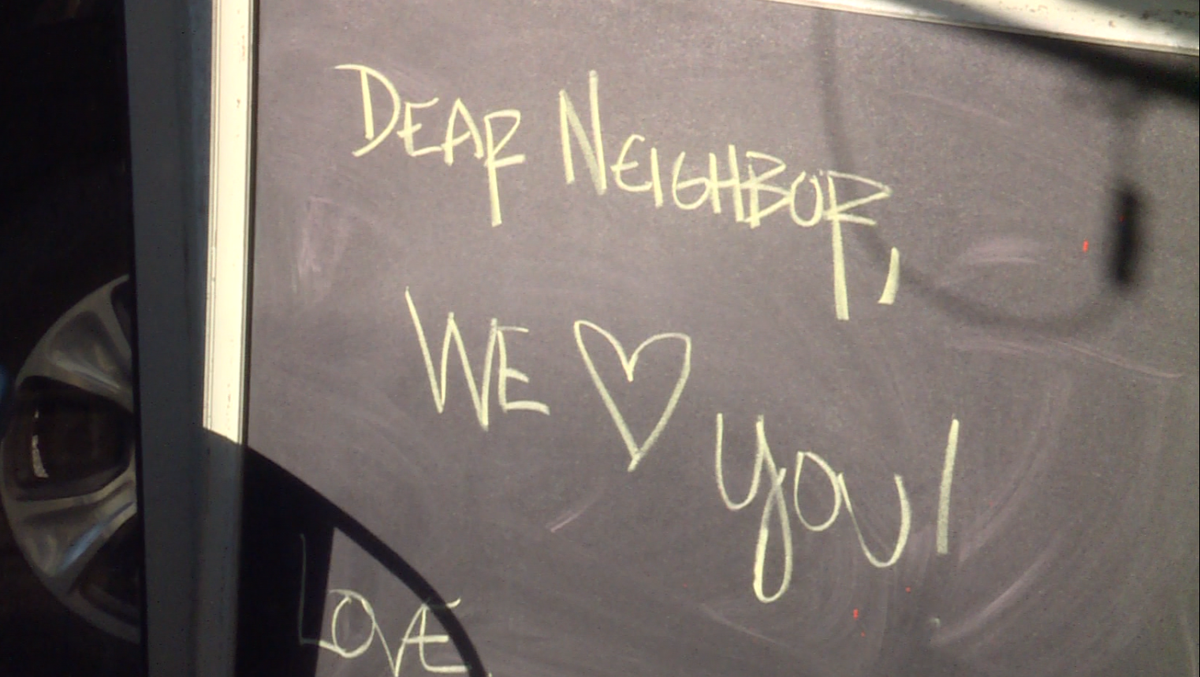 DEAR NEIGHBOR,
WE ♡ YOU!
LOVE